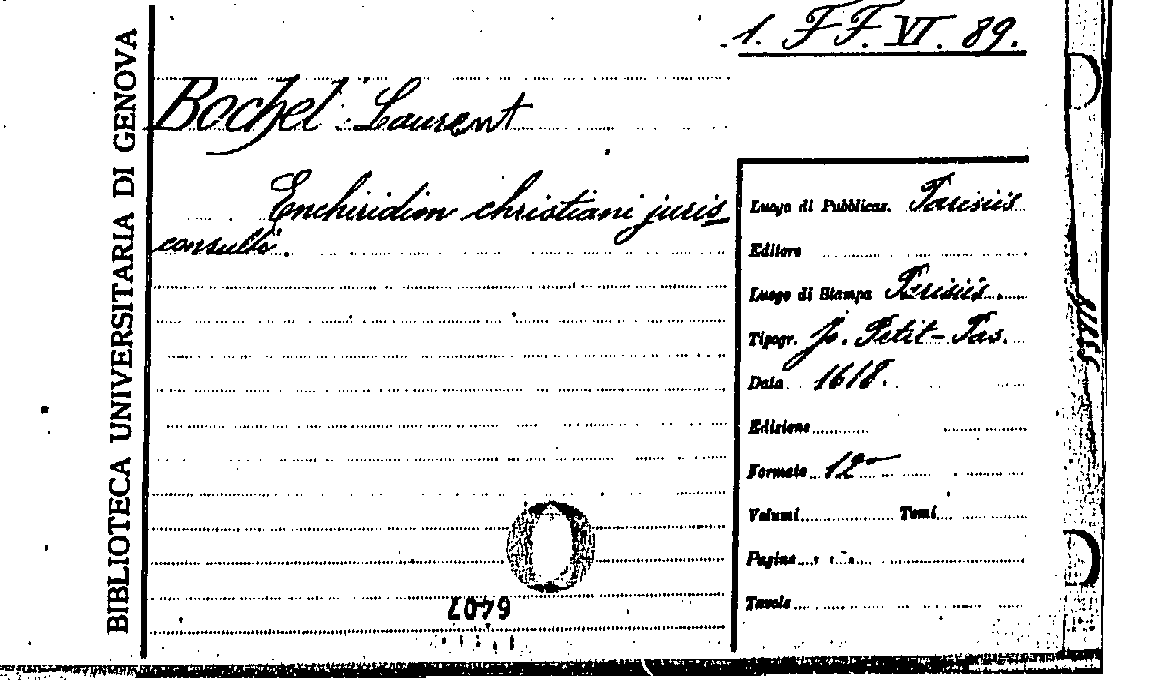 1. FF. VI. 89.
BIBLIOTECA UNIVERSITARIA DI GENOVA
Bochel Laurent
Enchiridion christiani juris
consulti.
Luogo di Pubblicaz. Parisiis
Editore
Luogo di Stampa Parisiis.
Tipogr. Jo. Petit-Pas.
Data 1618.
Edizione
Formato 12º
Volumi Tomi
Pagine
Tavole
6407